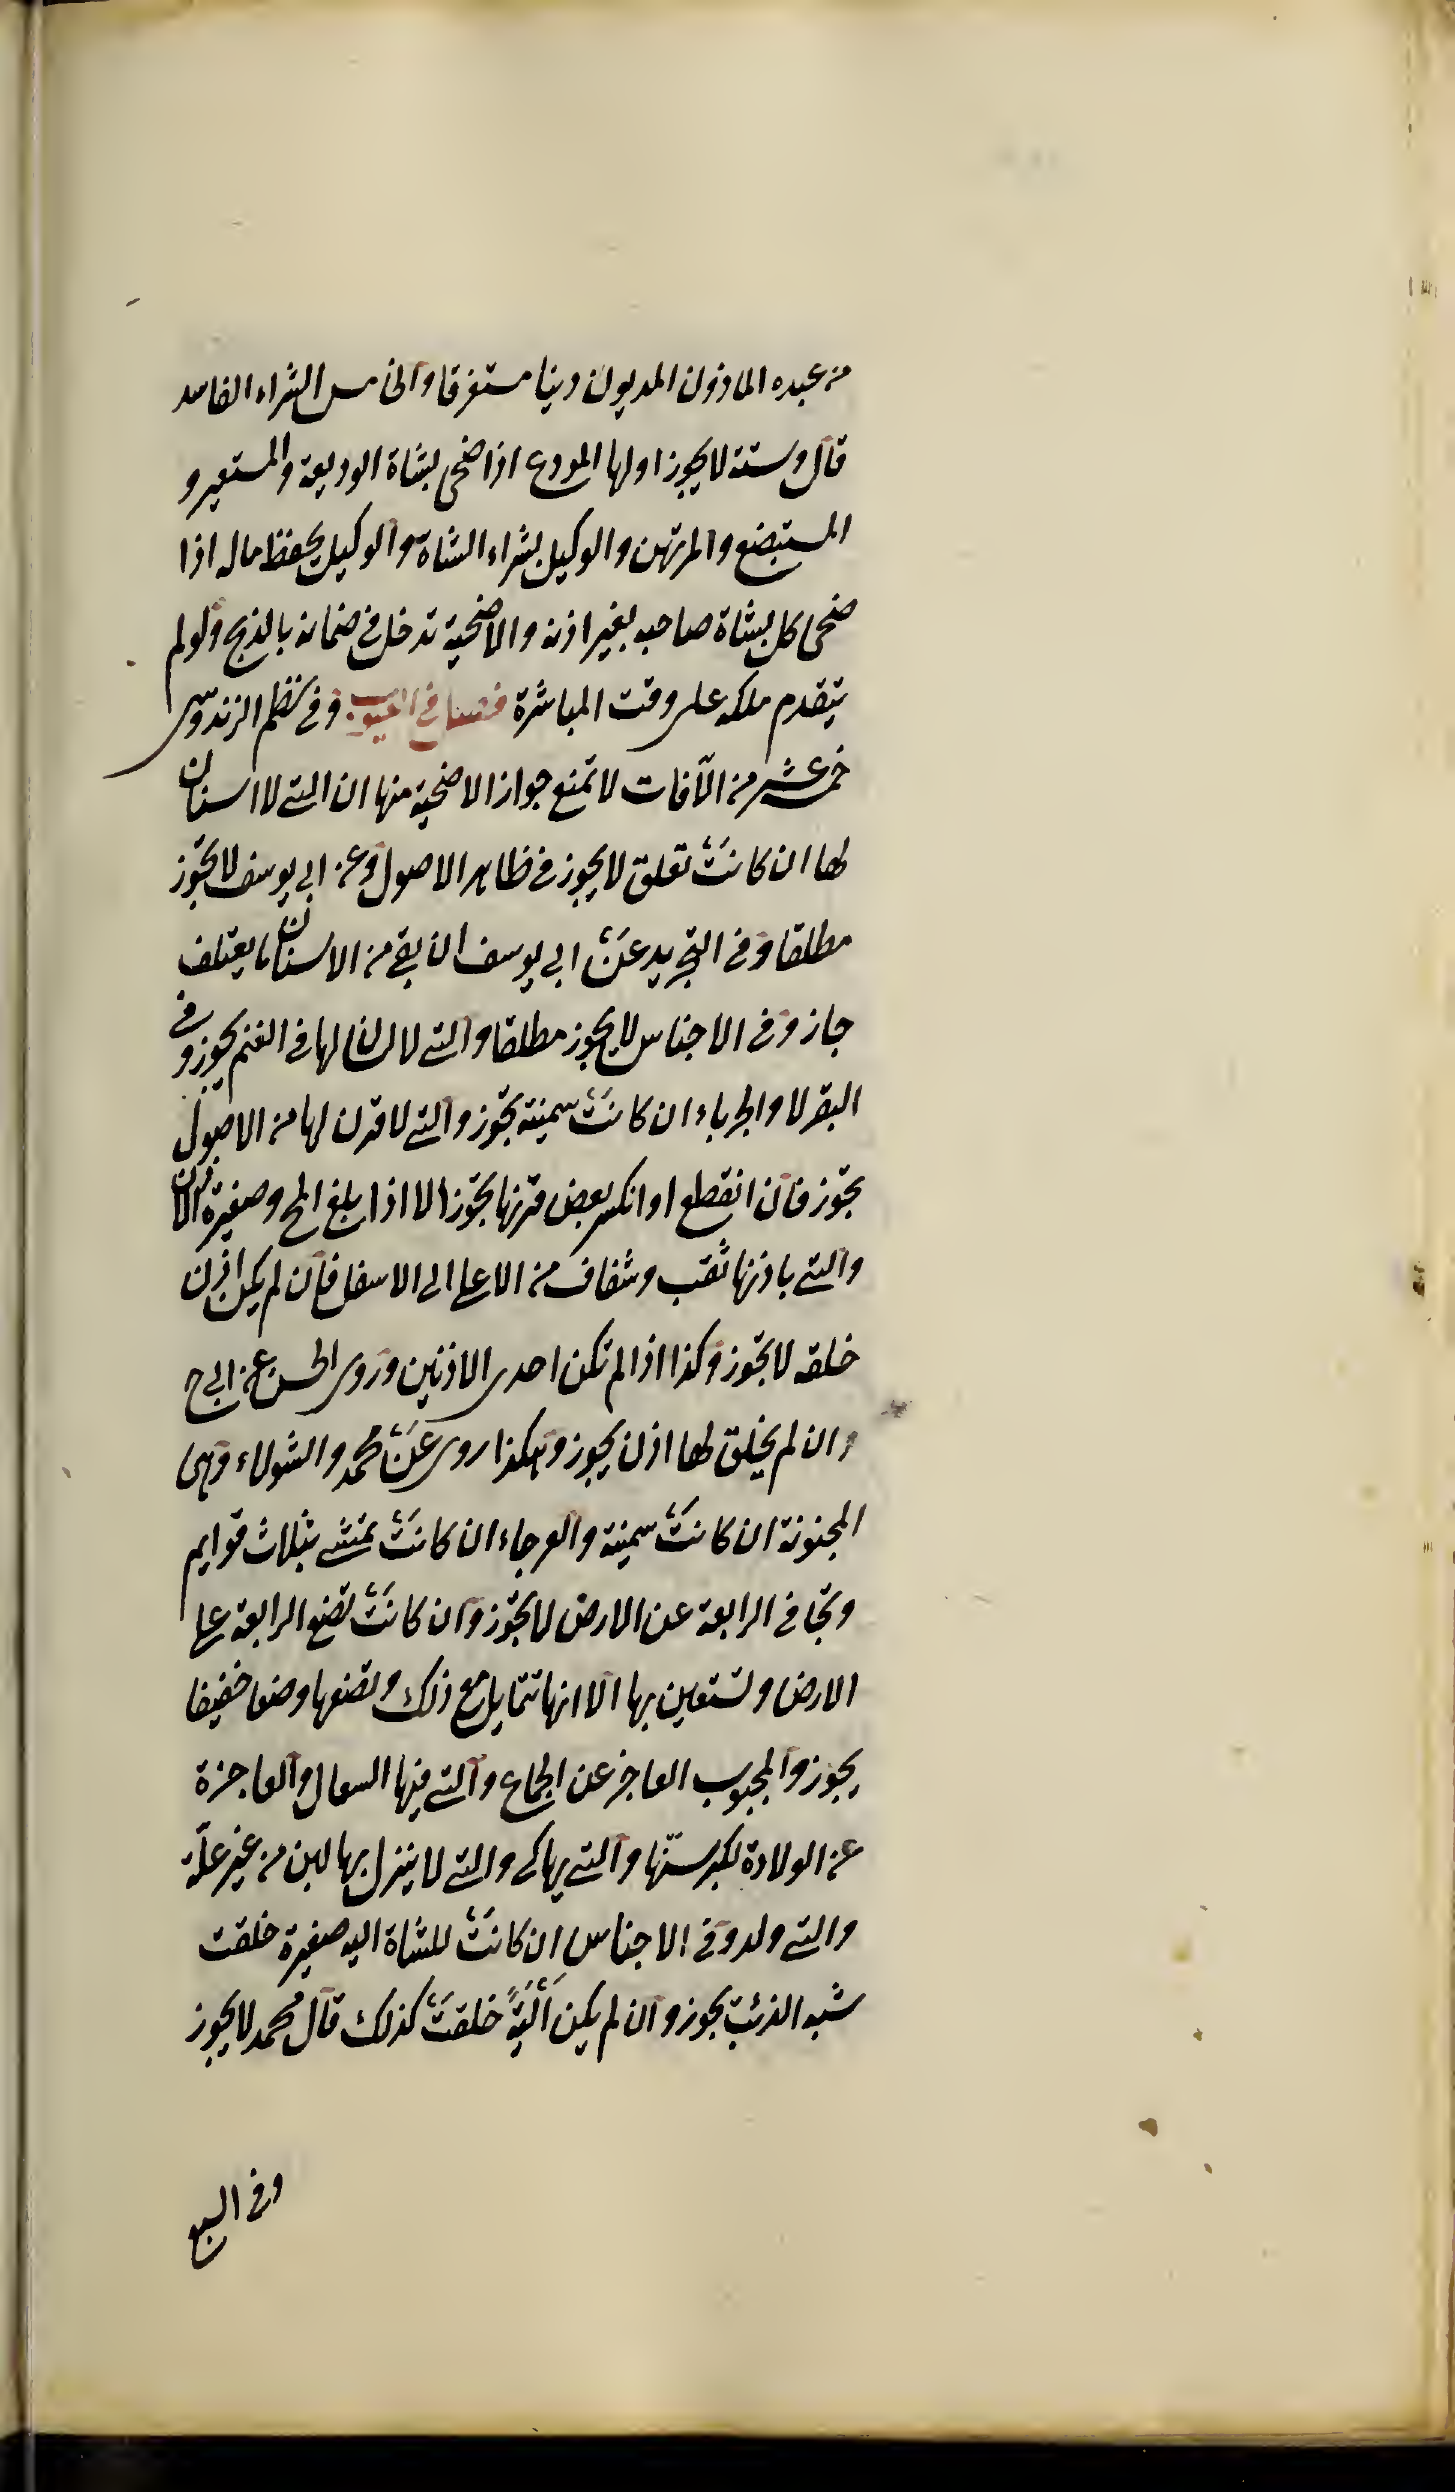 من عبده الماذون المديون دينا مستغرقا والخامس الشراء الفاسد
قال وستة لا يجوز اولها المودع اذا ضحى بشاة الوديعة والمستعير و
المستبضع والمرتهن والوكيل بشراء الشاة والوكيل بحفظ ماله اذا
ضحى كل بشاة صاحبه بغير اذنه والاضحية تدخل في ضمانه بالذبح ولو لم
يتقدم ملكه على وقت المباشرة فصل في العيوب وفي نظم الزندوسى
خمسة عشر من الآفات لا تمنع جواز الاضحية منها ان التي لا اسنان
لها ان كانت تعلق لا يجوز في ظاهر الاصول وعن ابي يوسف لا يجوز
مطلقا وفي التجريد عن ابي يوسف ان بقي من الاسنان ما يعتلف
جاز وفي الاجناس لا يجوز مطلقا والتي لا لسان لها في الغنم يجوز وفي
البقر لا والجرباء ان كانت سمينة يجوز والتي لا قرن لها من الاصول
يجوز فان انقطع او انكسر بعض قرنها يجوز الا اذا بلغ المخ وصغيرة الاذن
والتي باذنها ثقب وشقاق من الاعلى الى الاسفل فان لم يكن اذن
خلقه لا يجوز وكذا اذا لم تكن احدى الاذنين وروى الحسن عن ابي ح
وان لم يخلق لها اذن يجوز وهكذا روى عن محمد والثولاء وهي
المجنونة ان كانت سمينة والعرجاء ان كانت تمشي بثلاث قوايم
وتجافي الرابعة عن الارض لا يجوز وان كانت تضع الرابعة على
الارض وتستعين بها الا انها تتمايل مع ذلك وتضعها وضعا خفيفا
يجوز والمجبوب العاجز عن الجماع والتي فيها السعال والعاجزة
عن الولادة لكبر سنها والتي بها كي والتي لا ينزل بها لبن من غير علة
والتي ولد وفي الاجناس ان كانت للشاة الية صغيرة خلقت
شبه الذئب يجوز وان لم يكن الية خلقت كذلك قال محمد لا يجوز
وفي السبع